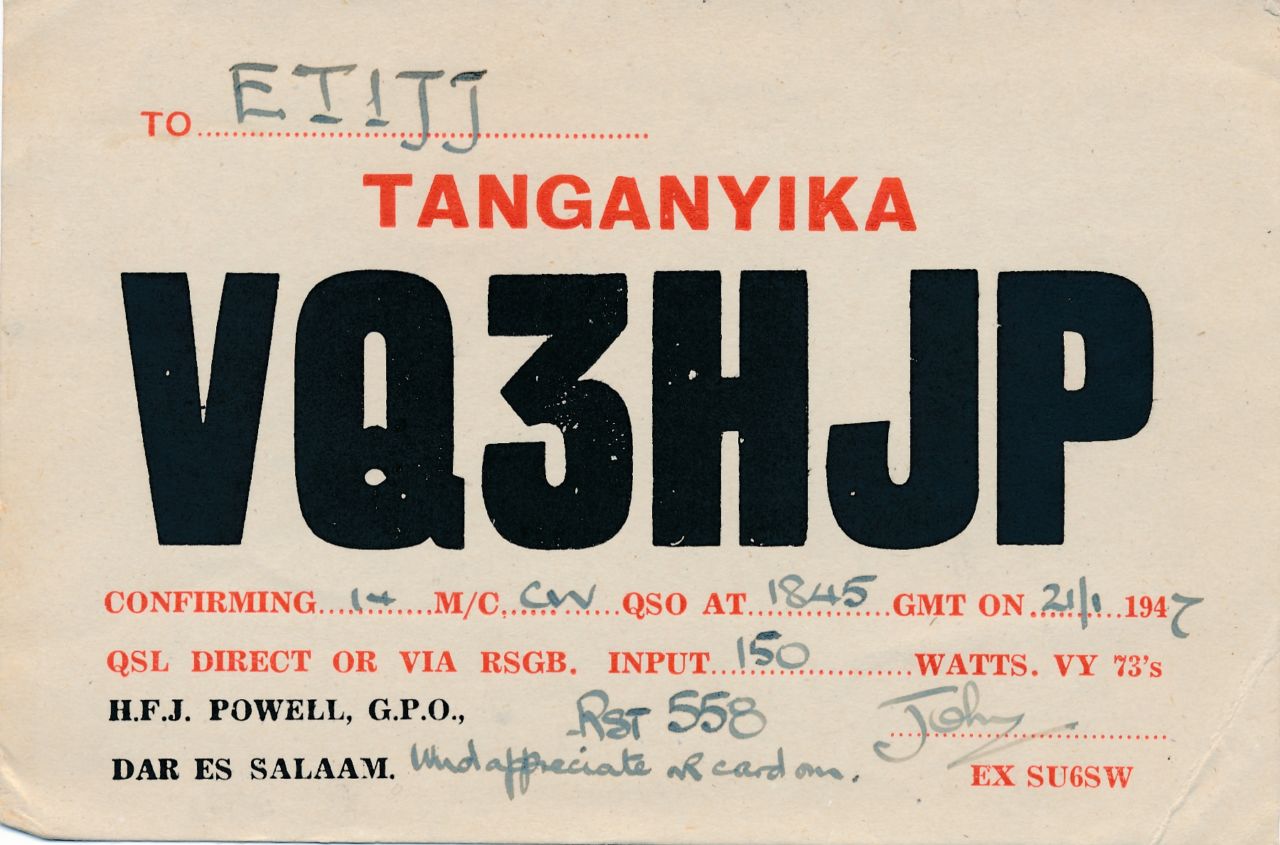 TO ET1JJ
TANGANYIKA
VQ3HJP
CONFIRMING 14 M/C CW QSO AT 1845 GMT ON 21/1 1947
QSL DIRECT OR VIA RSGB. INPUT 150 WATTS. VY 73's
H.F.J. POWELL, G.P.O., RST 558 John
DAR ES SALAAM. appreciate card om. EX SU6SW